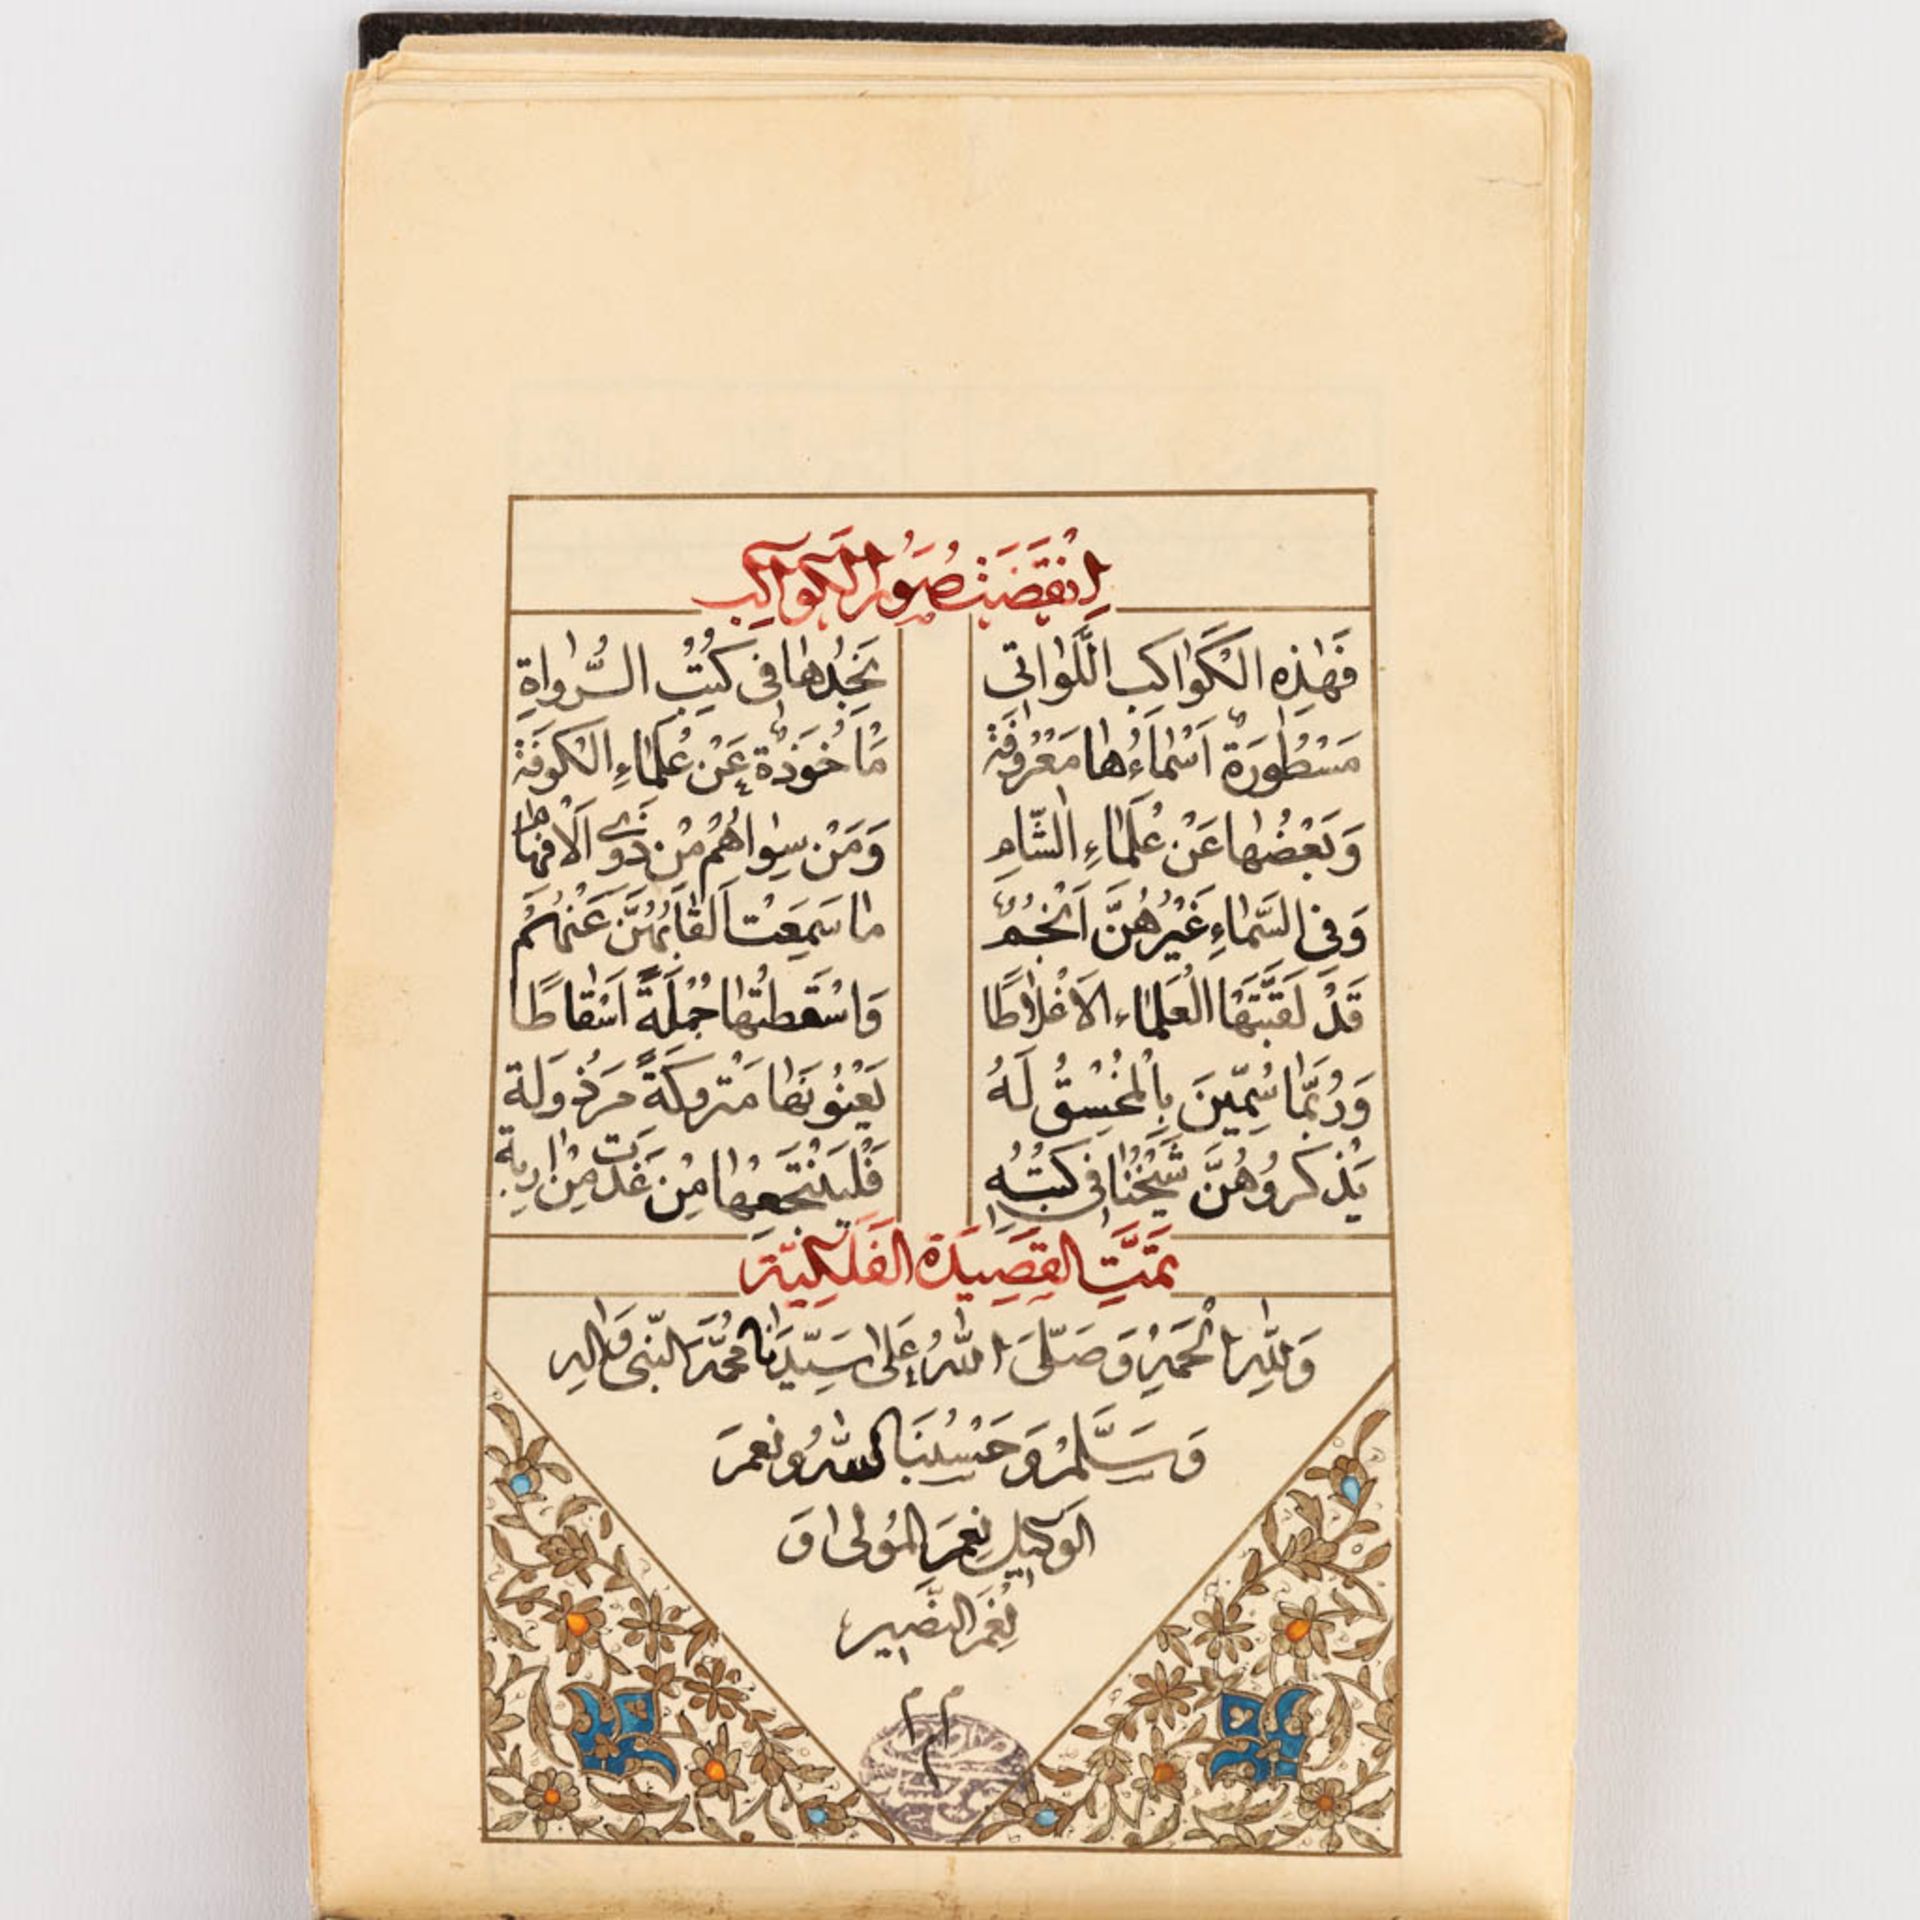 اِنْقَضَتْ صُوَرُ الكَواكِبِ
فَهٰذِهِ الكَواكِبُ اللَّواتى تَجِدُها فى كُتُبِ الرُّواةِ
مَسْطُورَةٌ اَسْماءُها مَعْرُوفَة مَاخُوذَةٌ عَنْ عُلَماءِ الكوفَة
وَبَعْضُها عَنْ عُلَماءِ الشّامِ وَمَنْ سِواهُمْ مِنْ ذَوى الاَفْهامِ
وَفى السَّماءِ غَيْرُهُنَّ اَنْجُمٌ ما سَمِعَتْ اَلقابُهُنَّ عَنْهُم
قَدْ لَقَّبَتْهَا العُلَماء الاَغْلاطًا وَاسْقَطتُها جُمْلَةً اسْقاطًا
وَرُبَّما سُمِّينَ بِالمُخْسِقُ لَهُ يَعْنُونَها مَتْروكَةً مَرْذولَة
يَذكُرُوهُنَّ شَيْخُنا فى كُتُبِه فَلْيَنْتَجِعْها مِنْ غَدَت مِنْ اربة
تَمَّتِ القَصِيدَة الفَلَكِيَّة
وَلِلّهِ الْحَمْدُ وَصَلَّى اللهُ عَلى سَيِّدِنا مُحَمَّد النَّبى وَاله
وَسَلَّمَ وَحَسْبُنَا اللهُ وَنعمَ
الوَكيل نِعمَ المَولى وَ
نِعْمَ النَصير
م م
م